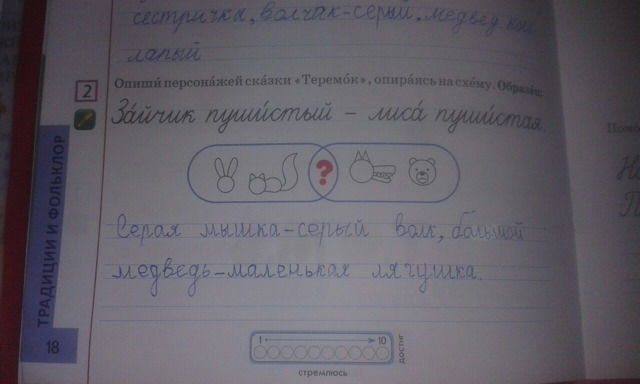 сестричка, волчак-серый, медвед кос
лапый
2
Опиши́ персона́жей ска́зки «Теремо́к», опира́ясь на схе́му. Образе́ц:
За́йчик пуши́стый – лиса́ пуши́стая.
?
Серая мышка-серый волк, большой
медведь-маленькая лягушка.
ТРАДИЦИИ И ФОЛЬКЛОР
18
1 10
достиг
стремлюсь